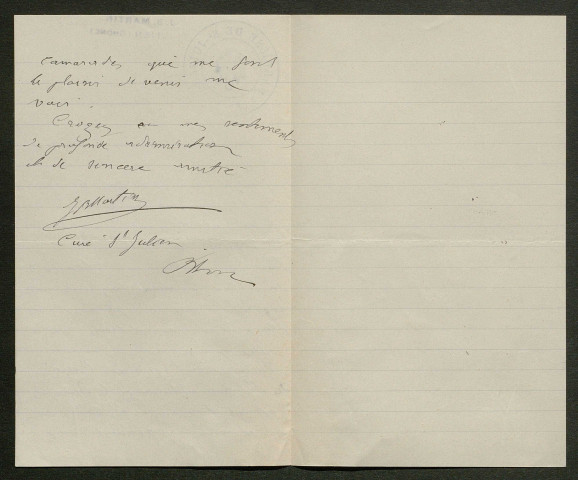 camarades qui me font
le plaisir de venir me
voir.
Croyez en mes sentiments
de profonde admiration
et de sincere amitié
JB Martin
Curé St Julien